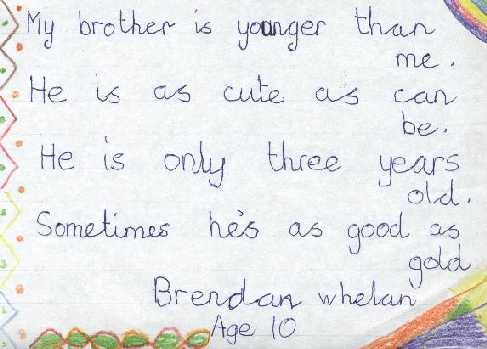 My brother is younger than
me.
He is as cute as can
be.
He is only three years
old.
Sometimes he's as good as
gold
Brendan whelan
Age 10